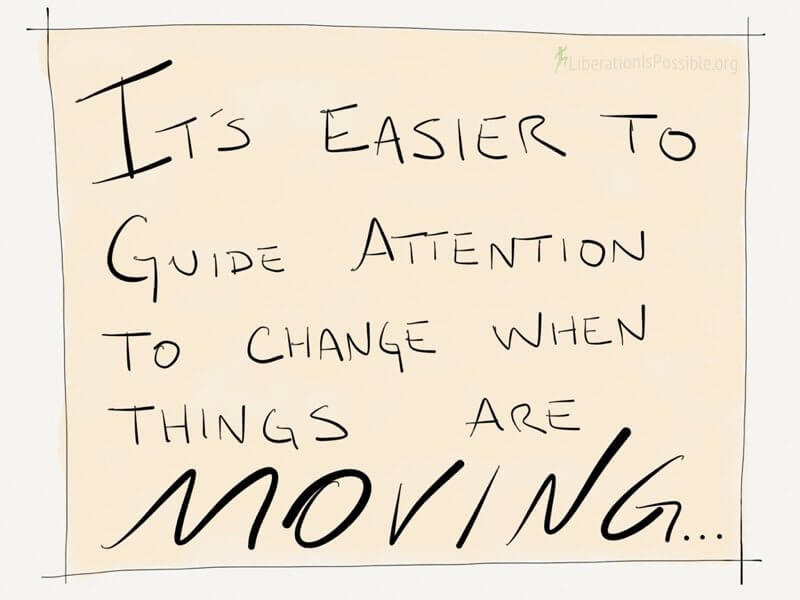 LiberationIsPossible.org
IT'S EASIER TO
GUIDE ATTENTION
TO CHANGE WHEN
THINGS ARE
MOVING...